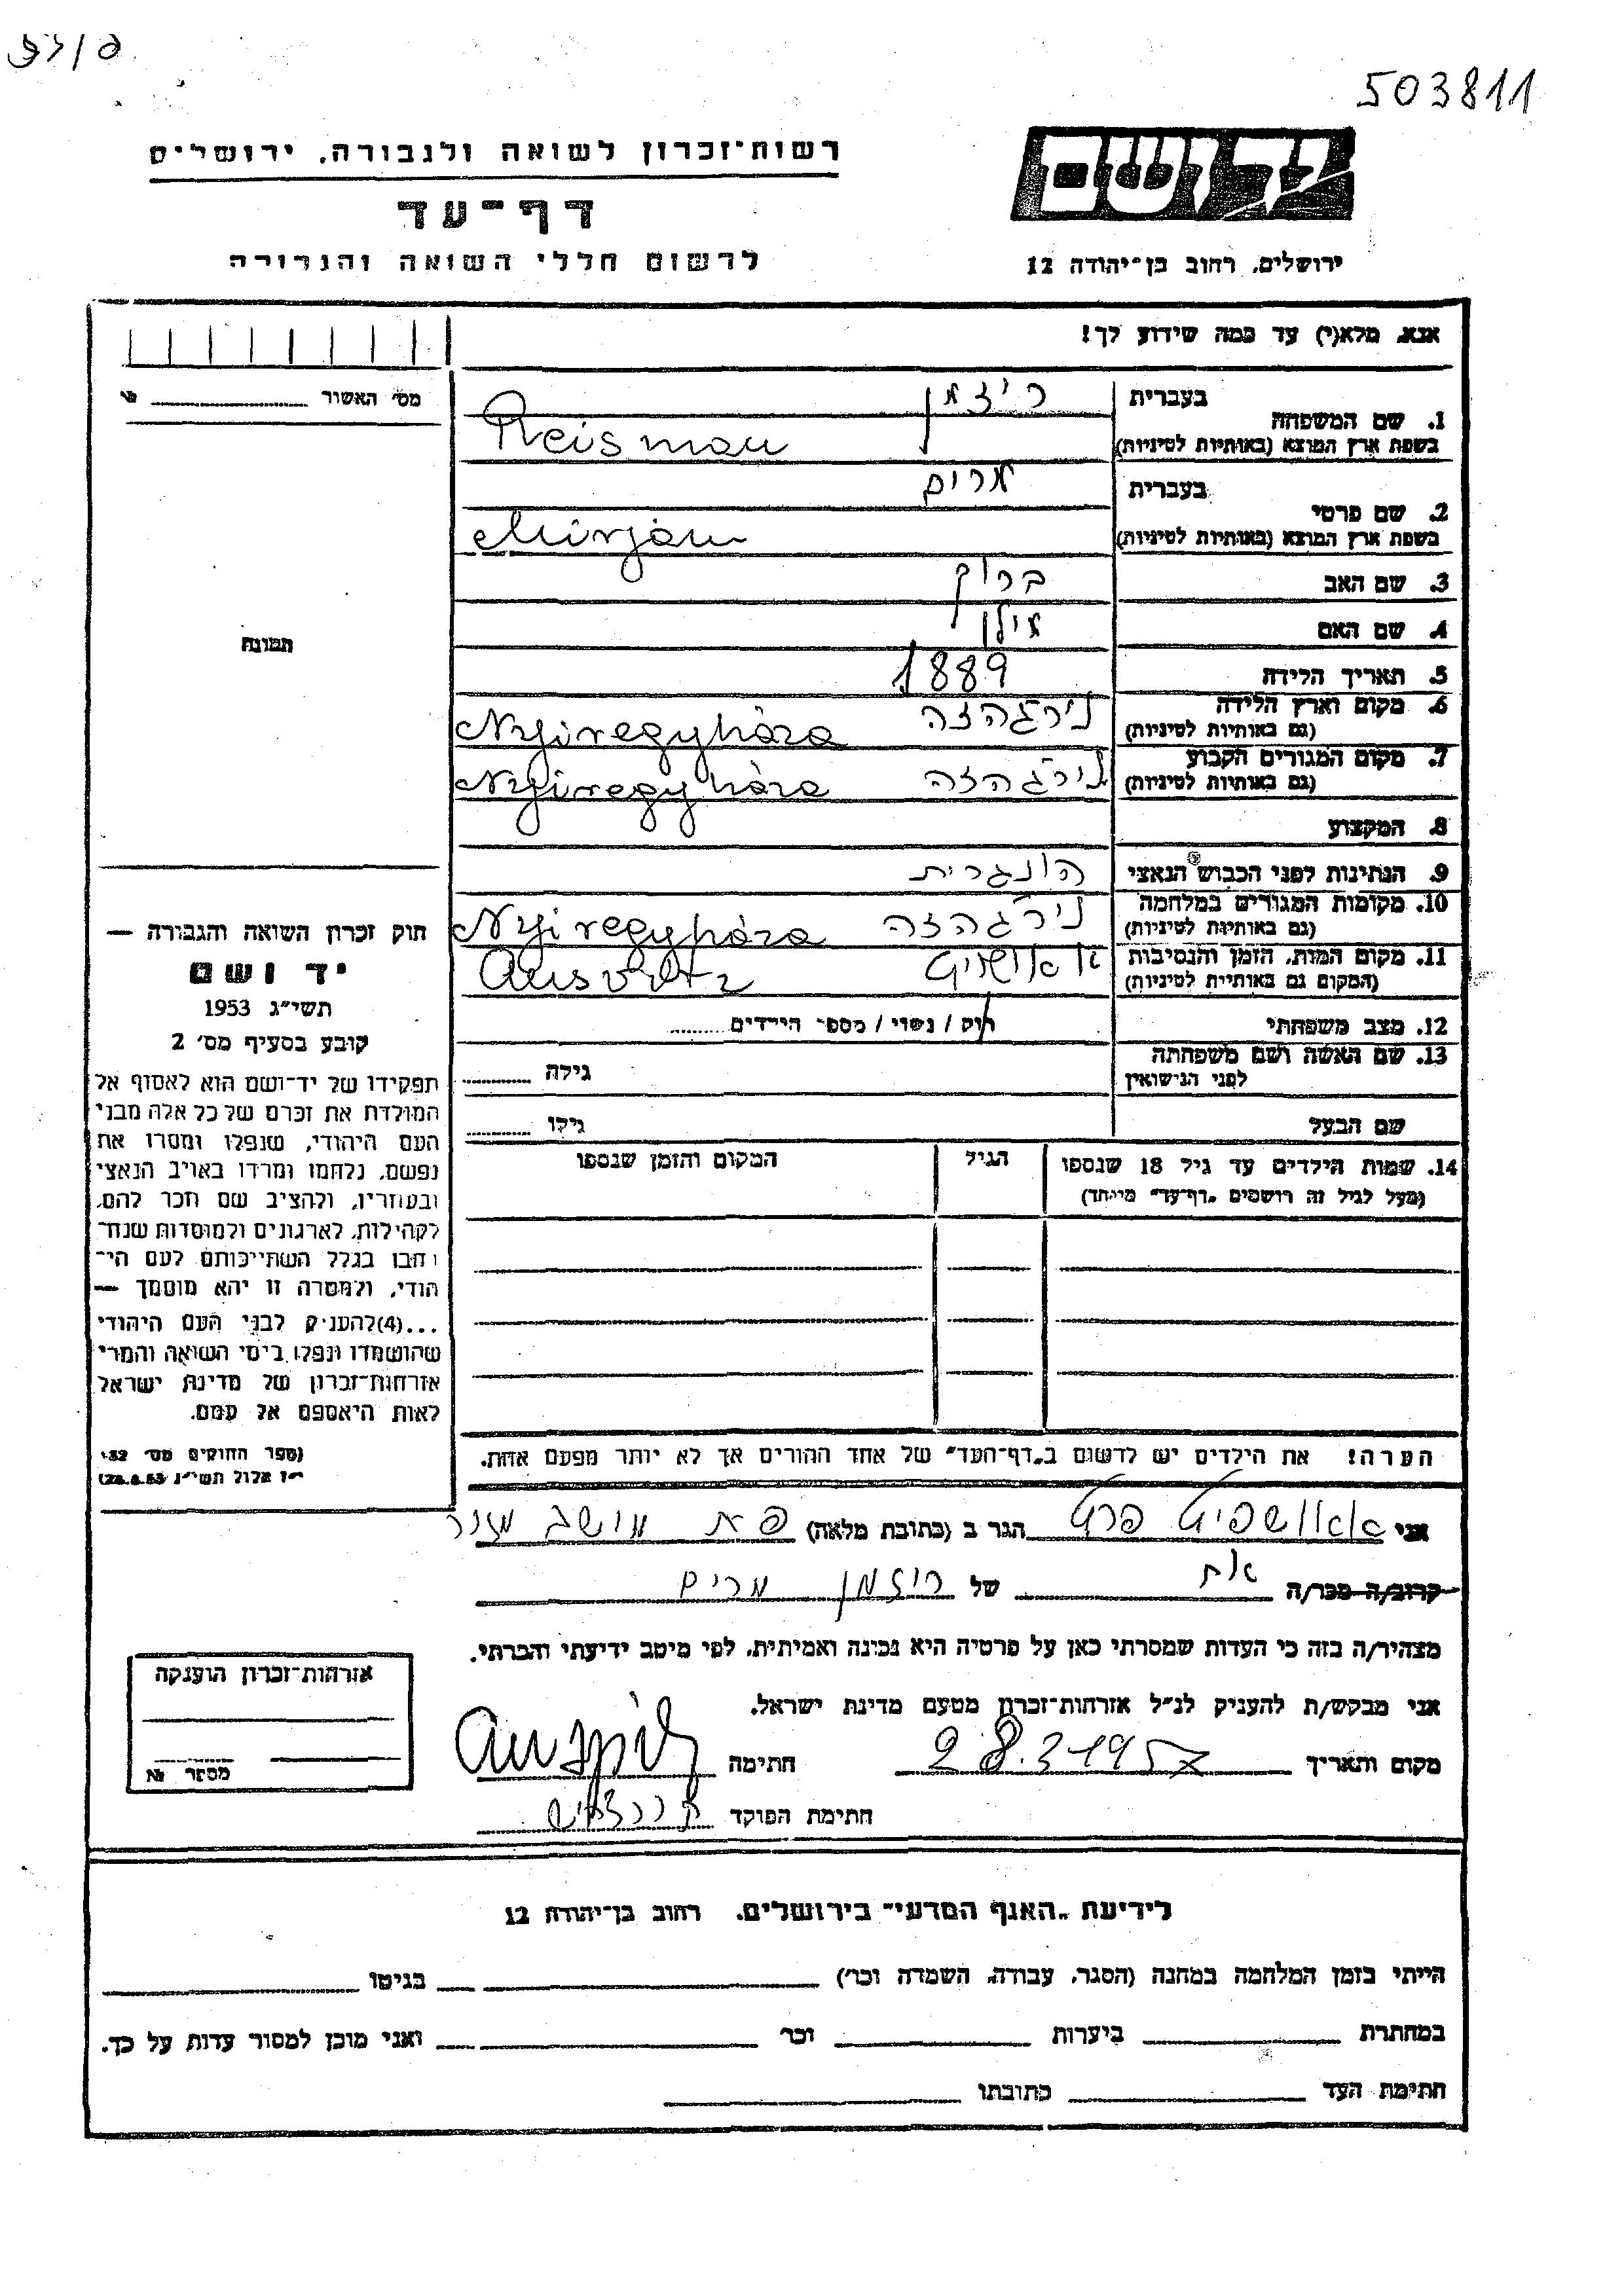 503811
רשות־זכרון לשואה ולגבורה, ירושלים
יד ושם
דף־עד
לרשום חללי השואה והגבורה
ירושלים, רחוב בן־יהודה 12
אנא, מלא(י) עד כמה שידוע לך!
מס׳ האשור
1. שם המשפחה
בעברית
ריזמן
בשפת ארץ המוצא (באותיות לטיניות)
Reisman
2. שם פרטי
בעברית
מרים
בשפת ארץ המוצא (באותיות לטיניות)
Mirjám
3. שם האב
ברוך
4. שם האם
אילן
5. תאריך הלידה
1889
6. מקום וארץ הלידה
(גם באותיות לטיניות)
נירגהזה Nyiregyháza
7. מקום המגורים הקבוע
(גם באותיות לטיניות)
נירגהזה Nyiregyháza
8. המקצוע
9. הנתינות לפני הכבוש הנאצי
הונגרית
10. מקומות המגורים במלחמה
(גם באותיות לטיניות)
נירגהזה Nyiregyháza
11. מקום המות, הזמן והנסיבות
(המקום גם באותיות לטיניות)
Ausvitz
12. מצב משפחתי
רוק / נשוי / מספר הילדים
13. שם האשה ושם משפחתה
לפני הנישואין
גילה
שם הבעל
גילו
14. שמות הילדים עד גיל 18 שנספו
(מעל לגיל זה רושמים „דף־עד״ מיוחד)
הגיל
המקום והזמן שנספו
תמונה
חוק זכרון השואה והגבורה —
יד ושם
תשי״ג 1953
קובע בסעיף מס׳ 2
תפקידו של יד־ושם הוא לאסוף אל
המולדת את זכרם של כל אלה מבני
העם היהודי, שנפלו ומסרו את
נפשם, נלחמו ומרדו באויב הנאצי
ובעוזריו, ולהציב שם וזכר להם,
לקהילות, לארגונים ולמוסדות שנח־
רבו בגלל השתייכותם לעם הי־
הודי, ולמטרה זו יהא מוסמך —
...(4)להעניק לבני העם היהודי
שהושמדו ונפלו בימי השואה והמרי
אזרחות־זכרון של מדינת ישראל
לאות היאספם אל עמם.
(ספר החוקים מס׳ 132
י״ז אלול תשי״ג 28.8.53)
הערה! את הילדים יש לרשום ב„דף־העד״ של אחד ההורים אך לא יותר מפעם אחת.
אני הגר ב (כתובת מלאה) מושב מזור
קרוב/ה מכר/ה אח של ריזמן מרים
מצהיר/ה בזה כי העדות שמסרתי כאן על פרטיה היא נכונה ואמיתית, לפי מיטב ידיעתי והכרתי.
אני מבקש/ת להעניק לנ״ל אזרחות־זכרון מטעם מדינת ישראל.
מקום ותאריך 28.3.1957 חתימה
חתימת הפוקד
אזרחות־זכרון הוענקה
מספר №
לידיעת „האגף המדעי״ בירושלים, רחוב בן־יהודה 12
הייתי בזמן המלחמה במחנה (הסגר, עבודה, השמדה וכר׳) בגיטו
במחתרת ביערות וכר׳ ואני מוכן למסור עדות על כך.
חתימת העד כתובתו